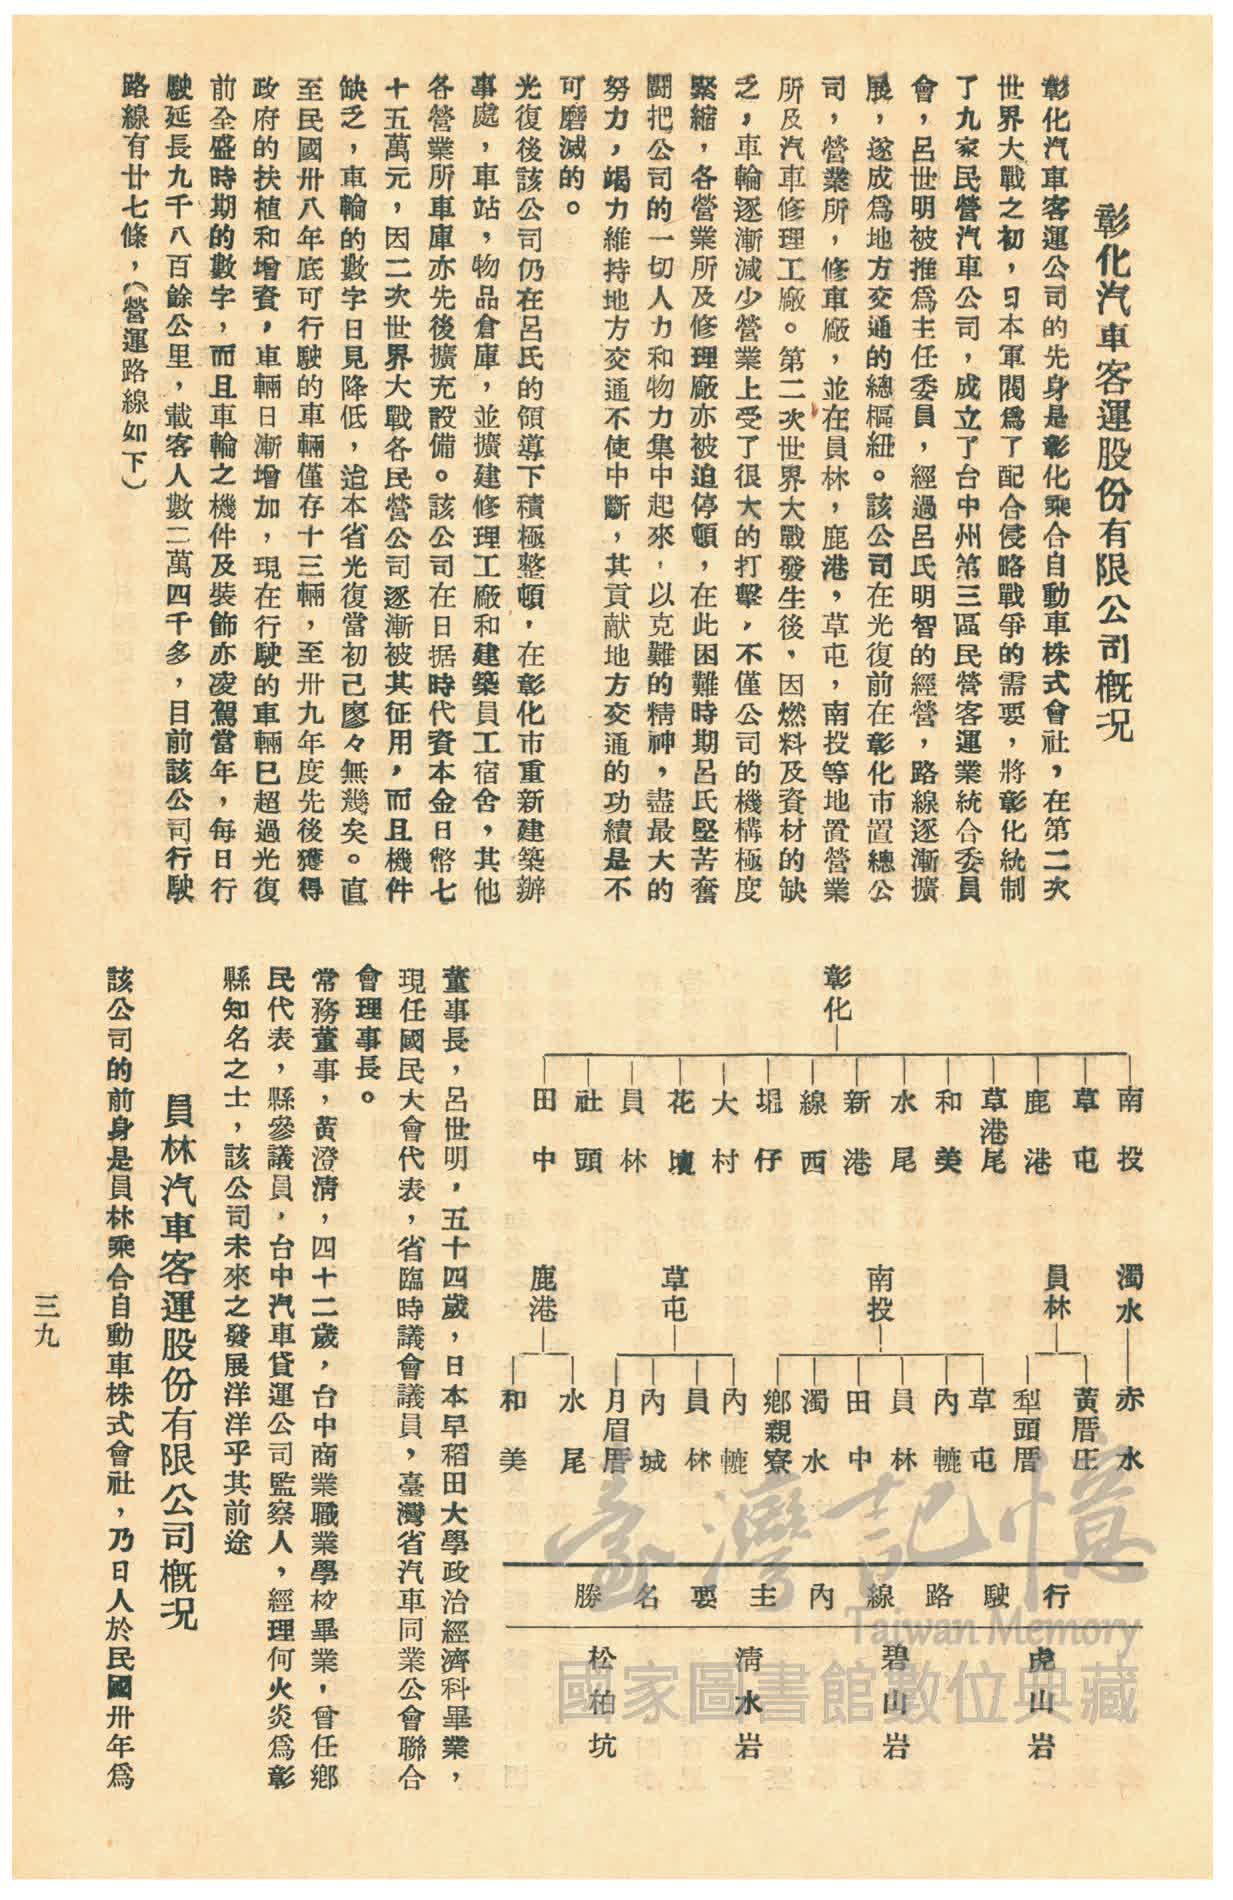 彰化汽車客運股份有限公司概況
彰化汽車客運公司的先身是彰化乘合自動車株式會社，在第二次
世界大戰之初，日本軍閥爲了配合侵略戰爭的需要，將彰化統制
了九家民營汽車公司，成立了台中州第三區民營客運業統合委員
會，呂世明被推爲主任委員，經過呂氏明智的經營，路線逐漸擴
展，遂成爲地方交通的總樞紐。該公司在光復前在彰化市置總公
司，營業所，修車廠，並在員林，鹿港，草屯，南投等地置營業
所及汽車修理工廠。第二次世界大戰發生後，因燃料及資材的缺
乏，車輪逐漸減少營業上受了很大的打擊，不僅公司的機構極度
緊縮，各營業所及修理廠亦被迫停頓，在此困難時期呂氏堅苦奮
鬪把公司的一切人力和物力集中起來，以克難的精神，盡最大的
努力，竭力維持地方交通不使中斷，其貢献地方交通的功績是不
可磨滅的。
光復後該公司仍在呂氏的領導下積極整頓，在彰化市重新建築辦
事處，車站，物品倉庫，並擴建修理工廠和建築員工宿舍，其他
各營業所車庫亦先後擴充設備。該公司在日据時代資本金日幣七
十五萬元，因二次世界大戰各民營公司逐漸被其征用，而且機件
缺乏，車輪的數字日見降低，迨本省光復當初己廖々無幾矣。直
至民國卅八年底可行駛的車輛僅存十三輛，至卅九年度先後獲得
政府的扶植和增資，車輛日漸增加，現在行駛的車輛已超過光復
前全盛時期的數字，而且車輪之機件及裝飾亦凌駕當年，每日行
駛延長九千八百餘公里，載客人數二萬四千多，目前該公司行駛
路線有廿七條，（營運路線如下）
彰化
南投
草屯
鹿港
草港尾
和美
水尾
新港
線西
堀仔
大村
花壇
員林
社頭
田中
濁水
赤水
員林
黃厝庄
犁頭厝
南投
草屯
內轆
員林
田中
濁水
鄉親寮
草屯
內轆
員林
內城
月眉厝
鹿港
水尾
和美
行駛路線內主要名勝
虎山岩
碧山岩
清水岩
松柏坑
董事長，呂世明，五十四歲，日本早稻田大學政治經濟科畢業，
現任國民大會代表，省臨時議會議員，臺灣省汽車同業公會聯合
會理事長。
常務董事，黃澄清，四十二歲，台中商業職業學校畢業，曾任鄉
民代表，縣參議員，台中汽車貸運公司監察人，經理何火炎爲彰
縣知名之士，該公司未來之發展洋洋乎其前途
員林汽車客運股份有限公司概況
該公司的前身是員林乘合自動車株式會社，乃日人於民國卅年爲
三九
臺灣記憶
Taiwan Memory
國家圖書館數位典藏